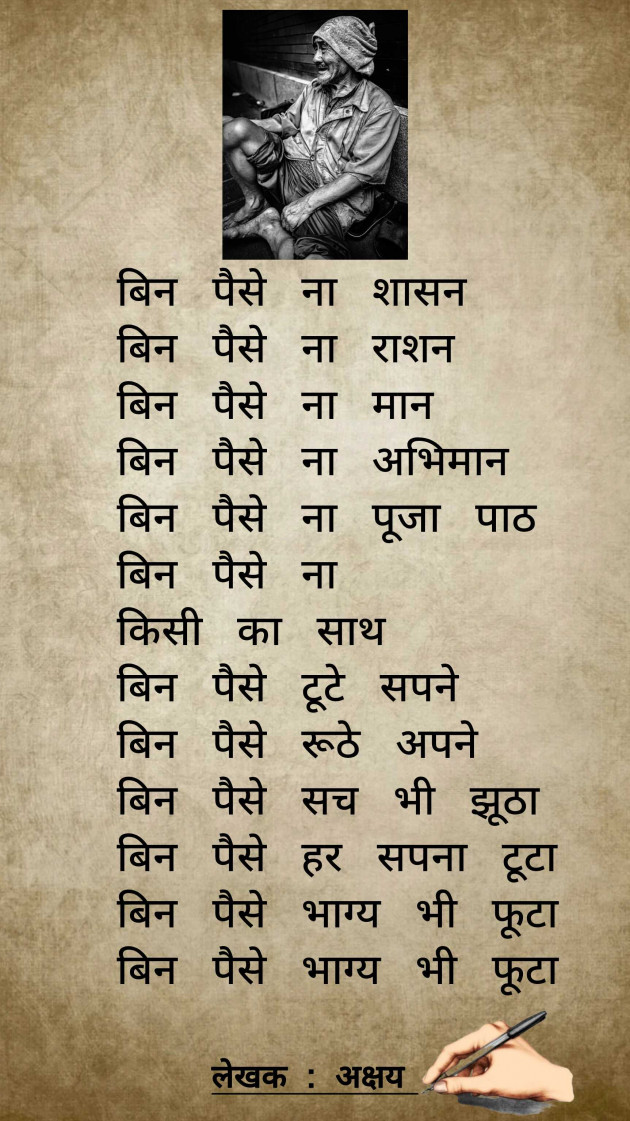 बिन पैसे ना शासन
बिन पैसे ना राशन
बिन पैसे ना मान
बिन पैसे ना अभिमान
बिन पैसे ना पूजा पाठ
बिन पैसे ना
किसी का साथ
बिन पैसे टूटे सपने
बिन पैसे रूठे अपने
बिन पैसे सच भी झूठा
बिन पैसे हर सपना टूटा
बिन पैसे भाग्य भी फूटा
बिन पैसे भाग्य भी फूटा
लेखक : अक्षय